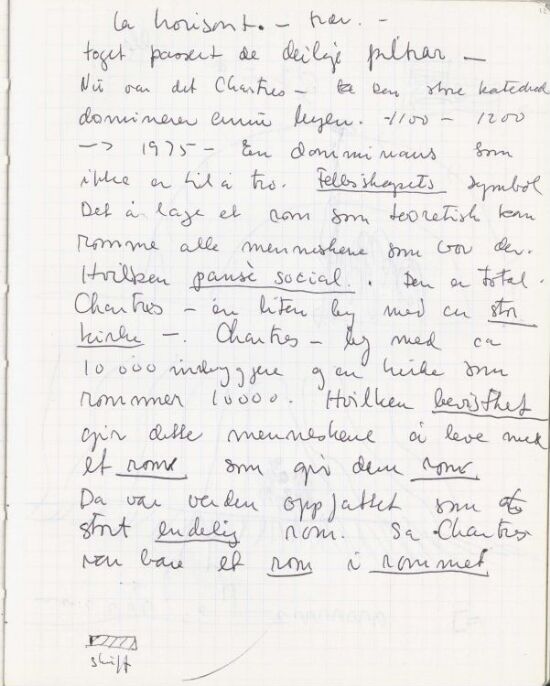 la horisont. — trær. —
toget passert de deilige piltrær —
Nu var det Chartres — den store katedral
dominerer ennu byen. -1100 - 1200
—> 1975 — En dominans som
ikke er til å tro. Fellesskapets symbol
Det å lage et rom som teoretisk kan
romme alle menneskene som bor der.
Hvilken pansè social. Den er total.
Chartres — en liten by med en stor
kirke —. Chartres — by med ca
10 000 innbyggere og en kirke som
rommer 10000. Hvilken bevissthet
gir dette menneskene å leve med
et rom som gir dem rom
Da var verden oppfattet som et
stort endelig rom. Så Chartres
var bare et rom i rommet
skift